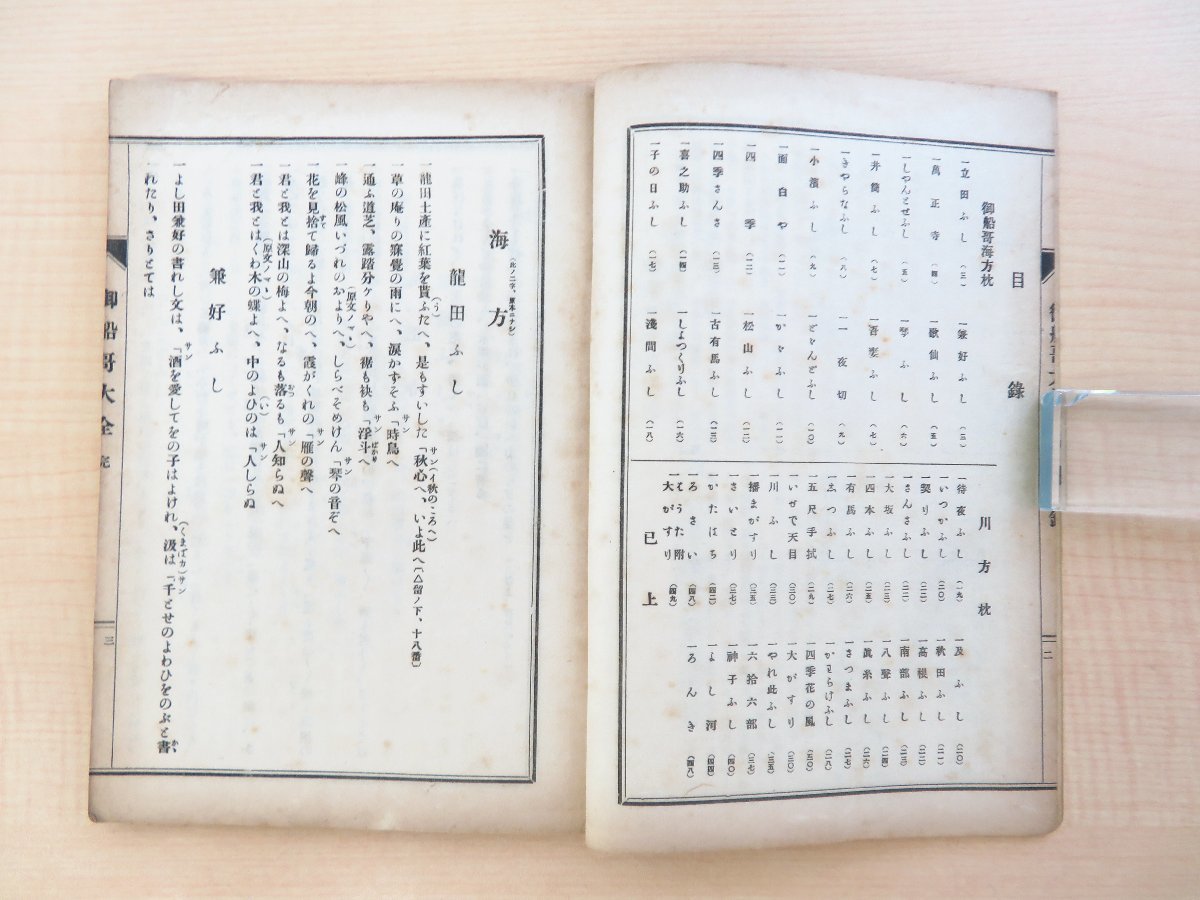 目錄
御船哥海方枕
一立田ふし(三)
一兼好ふし(三)
一萬正寺(四)
一歌仙ふし(五)
一しやんとせぶし(五)
一琴ふし(六)
一井筒ふし(七)
一吾妻ふし(七)
一きやらなふし(八)
一一夜切(九)
一小濱ふし(九)
一どゝんどふし(一〇)
一面白や(一一)
一かゞふし(一一)
一四季(一二)
一松山ふし(一二)
一四季さんさ(一三)
一古有馬ふし(一三)
一喜之助ふし(一四)
一しよつくりふし(一六)
一子の日ふし(一七)
一淺間ふし(一八)
川方枕
一待夜ふし(一九)
一及ふし(二〇)
一いつかふし(二〇)
一秋田ふし(二一)
一契りふし(二二)
一高根ふし(二二)
一さんさふし(二二)
一南部ふし(二三)
一大坂ふし(二三)
一八聲ふし(二四)
一四本ふし(二五)
一眞糸ふし(二六)
一有馬ふし(二六)
一さつまふし(二七)
一出つふし(二七)
一かわらけふし(二八)
一五尺手拭(二九)
一四季花の風(三〇)
一いかで天目(三〇)
一大がすり(三〇)
一川ふし(三三)
一やれ此ふし(三五)
一播まがすり(三五)
一六拾六部(三七)
一さいとり(三七)
一神子ふし(四〇)
一かたはち(四二)
一よし河(四四)
一ろさい(四八)
一ろんき(四八)
一はうた附大がすり(四九)
已上
二
海方(此ノ二字、原本ニナシ)
龍田ふし
一龍田土產に紅葉を貰ふ(う)たへ、是もすいした「サン秋心(イ秋のころへ)へ、いよ此へ〔△留ノ下、十八番〕
一草の庵りの寐覺の雨にへ、淚かずそふ「サン時鳥へ
一通ふ道芝、露踏分ケりやへ、裾も袂も「サン浮斗ばかりへ
一峰の松風いづれのかより(原文ノマヽ)へ、しらべそめけん「サン琴の音ぞへ
一花を見捨すてて歸るよ今朝のへ、霞がくれの「サン雁の聲へ
一君と我とは深山の梅よへ、なるも落おつるも「サン人知らぬへ
一君と我とはくわ木の蝶(原文ノマヽ)よへ、中のよひ(い)のは「サン人しらぬ
兼好ふし
一よし田兼好の書れし文は、「サン酒を愛してをの子はよけれ、汲は(くまずカ)「サン千とせのよわひをのぶと書か、
れたり、さりとては
御船哥大全 完
三